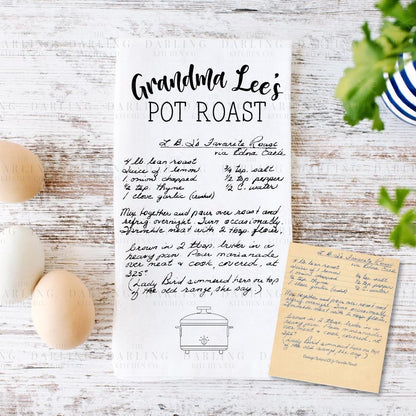 Grandma Lee's
POT ROAST
L B J's Favorite Roast
via Edna Cade
4 lb lean roast
Juice of 1 lemon ¾ tsp. salt
1 onion chopped ½ tsp pepper
½ tsp. thyme ½ C. water
1 clove garlic (crushed)
Mix together and pour over roast and
refrig overnight. Turn occasionally.
Sprinkle meat with 2 tbsp. flour,
brown in 2 tbsp. butter in a
heavy pan. Pour marinade
over meat & cook, covered, at
325°
(Lady Bird simmered hers on top
of the old range, she say.)
DARLING
KITCHEN CO.